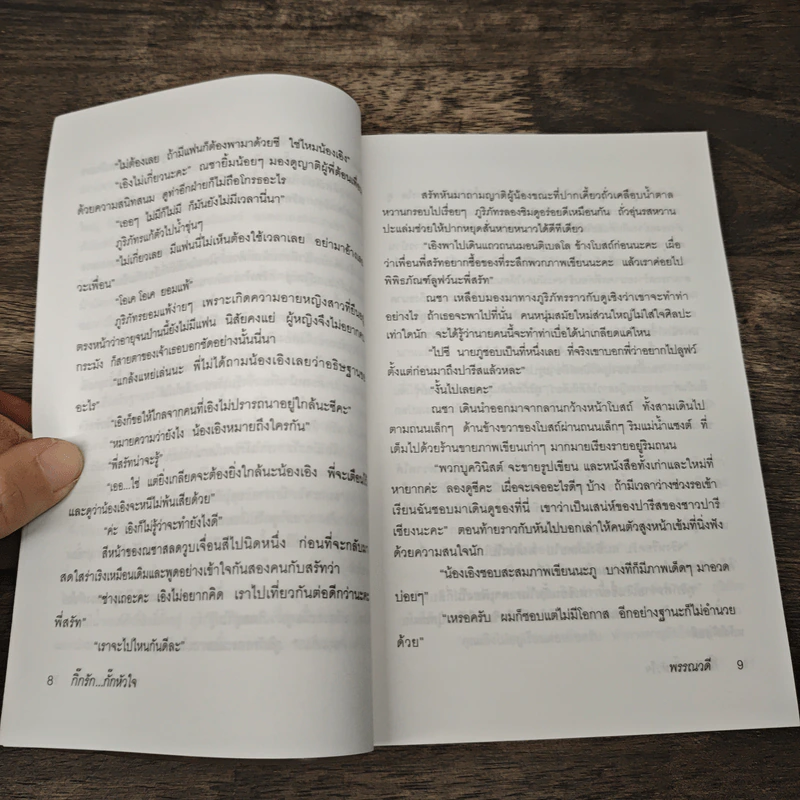 "ไม่ต้องเลย ถ้ามีแฟนก็ต้องพามาด้วยซี ใช่ไหมน้องเอิง"
"เอิงไม่เกี่ยวนะคะ" ณชายิ้มน้อยๆ มองดูญาติผู้พี่ต้อนเพื่อน
ด้วยความสนิทสนม ดูท่าอีกฝ่ายก็ไม่ถือโกรธอะไร
"เออๆ ไม่มีก็ไม่มี ก็มันยังไม่มีเวลานี่นา"
ภูริภัทรแก้ตัวไปน้ำขุ่นๆ
"ไม่เกี่ยวเลย มีแฟนนี่ไม่เห็นต้องใช้เวลาเลย อย่ามาอ้างเลย
วะเพื่อน"
"โอเค โอเค ยอมแพ้"
ภูริภัทรยอมแพ้ง่ายๆ เพราะเกิดความอายหญิงสาวที่ยืนอยู่
ตรงหน้าว่าอายุจนป่านนี้ยังไม่มีแฟน นิสัยคงแย่ ผู้หญิงจึงไม่อยากคบ
กระมัง ก็สายตาของเจ้าเธอบอกชัดอย่างนั้นนี่นา
"แกล้งแหย่เล่นนะ พี่ไม่ได้ถามน้องเอิงเลยว่าอธิษฐานขอ
อะไร"
"เอิงก็ขอให้ไกลจากคนที่เอิงไม่ปรารถนาอยู่ใกล้นะซีคะ"
"หมายความว่ายังไง น้องเอิงหมายถึงใครกัน"
"พี่สรัทน่าจะรู้"
"เออ...ใช่ แต่ยิ่งเกลียดจะต้องยิ่งใกล้นะน้องเอิง พี่จะเตือนไว้
และดูว่าน้องเอิงจะหนีไม่พ้นเสียด้วย"
"ค่ะ เอิงก็ไม่รู้ว่าจะทำยังไงดี"
สีหน้าของณชาสลดวูบเจื่อนสีไปนิดหนึ่ง ก่อนที่จะกลับมา
สดใสร่าเริงเหมือนเดิมและพูดอย่างเข้าใจกันสองคนกับสรัทว่า
"ช่างเถอะคะ เอิงไม่อยากคิด เราไปเที่ยวกันต่อดีกว่านะคะ
พี่สรัท"
"เราจะไปไหนกันดีละ"
8 กิ๊กรัก...กั๊กหัวใจ
สรัทหันมาถามญาติผู้น้องขณะที่ปากเคี้ยวถั่วเคลือบน้ำตาล
หวานกรอบไปเรื่อยๆ ภูริภัทรลองชิมดูอร่อยดีเหมือนกัน ถั่วอุ่นรสหวาน
ปะแล่มช่วยให้ปากหยุดสั่นหายหนาวได้ดีทีเดียว
"เอิงพาไปเดินแถวถนนมอนติเบลโล ข้างโบสถ์ก่อนนะคะ เผื่อ
ว่าเพื่อนพี่สรัทอยากซื้อของที่ระลึกพวกภาพเขียนนะคะ แล้วเราค่อยไป
พิพิธภัณฑ์ลูฟว์นะพี่สรัท"
ณชา เหลือบมองมาทางภูริภัทรราวกับดูเชิงว่าเขาจะทำท่า
อย่างไร ถ้าเธอจะพาไปที่นั่น คนหนุ่มสมัยใหม่ส่วนใหญ่ไม่ใส่ใจศิลปะ
เท่าใดนัก จะได้รู้ว่านายคนนี้จะทำท่าเบื่อได้น่าเกลียดแค่ไหน
"ไปซี นายภูชอบเป็นที่หนึ่งเลย ที่จริงเขาบอกพี่ว่าอยากไปลูฟว์
ตั้งแต่ก่อนมาถึงปารีสแล้วหละ"
"งั้นไปเลยคะ"
ณชา เดินนำออกมาจากลานกว้างหน้าโบสถ์ ทั้งสามเดินไป
ตามถนนเล็กๆ ด้านข้างขวาของโบสถ์ผ่านถนนเล็กๆ ริมแม่น้ำแซงต์ ที่
เต็มไปด้วยร้านขายภาพเขียนเก่าๆ มากมายเรียงรายอยู่ริมถนน
"พวกบูควินิสต์ จะขายรูปเขียน และหนังสือทั้งเก่าและใหม่ที่
หายากค่ะ ลองดูซีคะ เผื่อจะเจออะไรดีๆ บ้าง ถ้ามีเวลาว่างช่วงรอเข้า
เรียนฉันชอบมาเดินดูของที่นี่ เขาว่าเป็นเสน่ห์ของปารีสของชาวปารี
เซียงนะคะ" ตอนท้ายราวกับหันไปบอกเล่าให้คนตัวสูงหน้าเข้มที่นิ่งฟัง
ด้วยความสนใจนัก
"น้องเอิงชอบสะสมภาพเขียนนะภู บางทีก็มีภาพเด็ดๆ มาอวด
บ่อยๆ"
"เหรอครับ ผมก็ชอบแต่ไม่มีโอกาส อีกอย่างฐานะก็ไม่อำนวย
ด้วย"
พรรณวดี 9